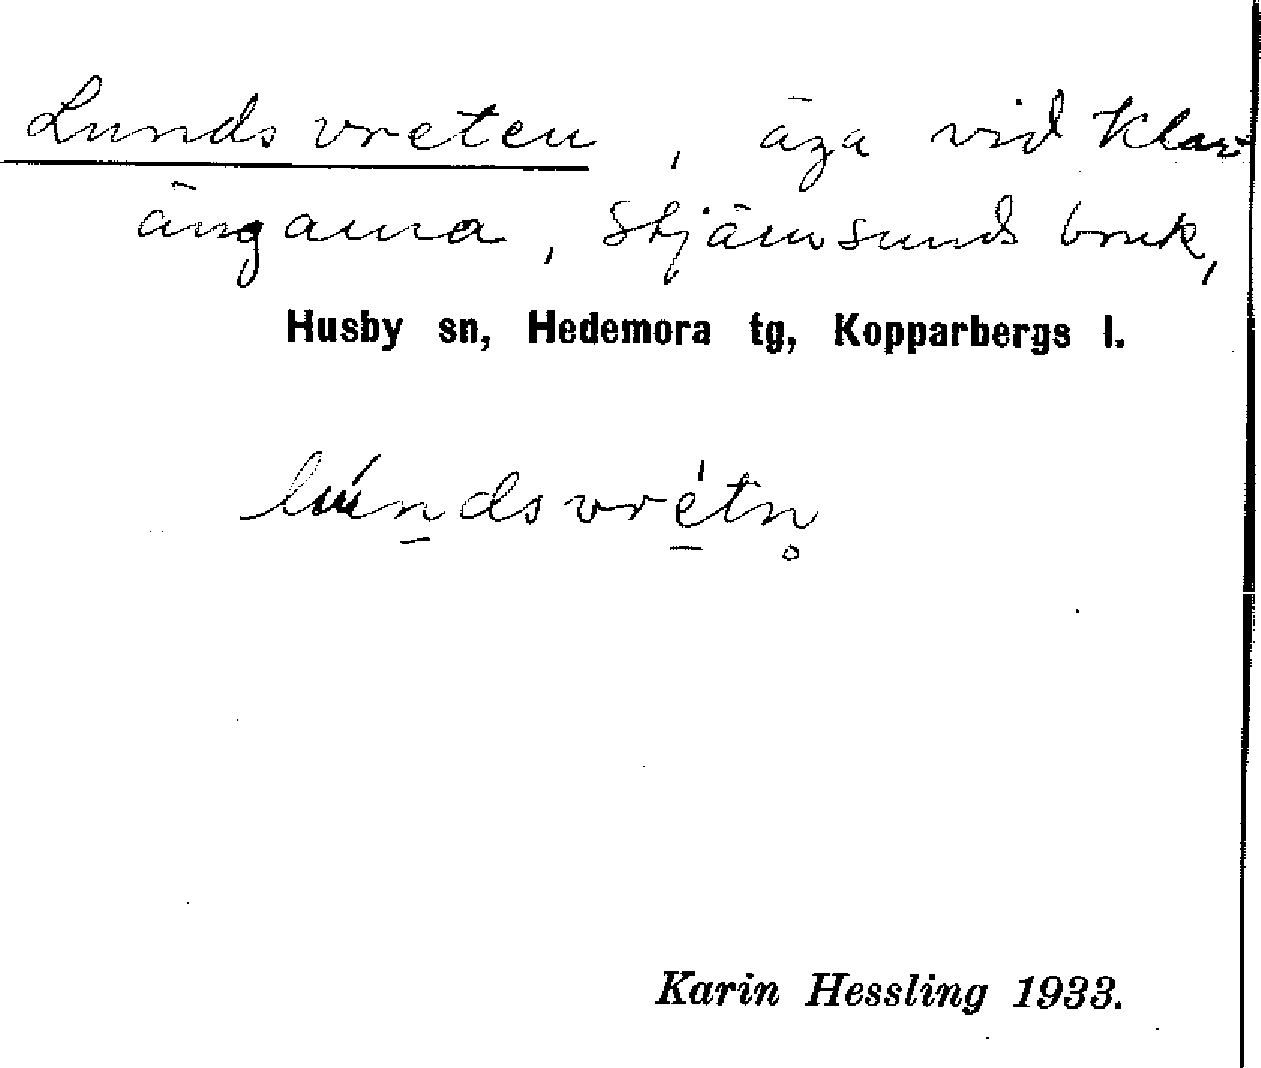 Lundsvreten, äga vid Klar-
ängarna, Stjärnsunds bruk,
Husby sn, Hedemora tg, Kopparbergs l.
lúndsvrétn̥
Karin Hessling 1933.